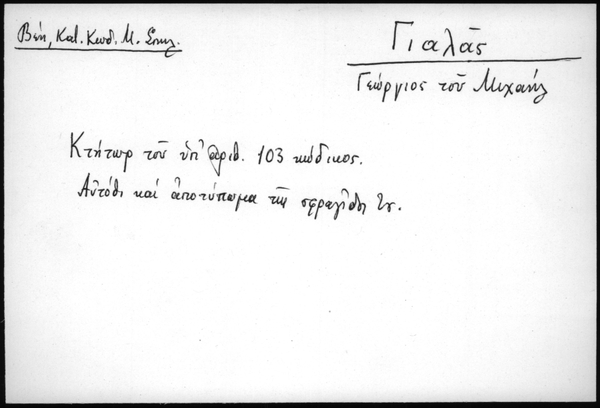 Βέη, Κατ. Κωδ. Μ. Σπηλ.
Γιαλᾶς
Γεώργιος τοῦ Μιχαήλ
Κτήτωρ τοῦ ὑπ' ἀριθ. 103 κώδικος.
Αὐτόθι καὶ ἀποτύπωμα τῆς σφραγῖδος του.